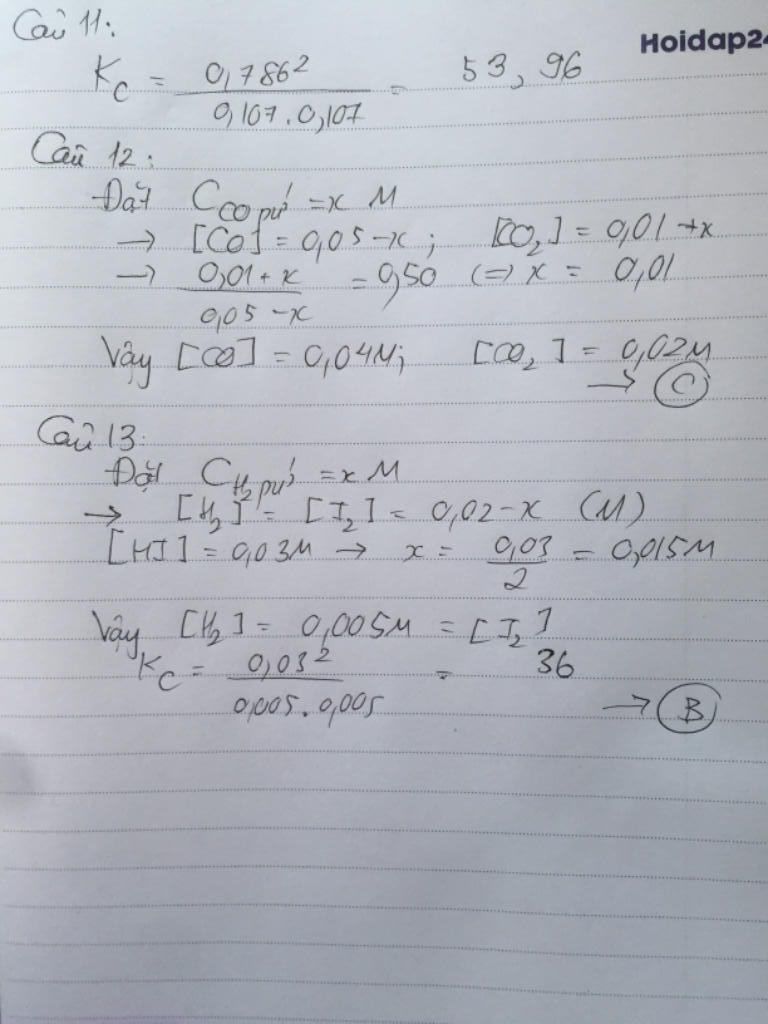 Câu 11:
Hoidap24
K_C = 0,786² / 0,107.0,107 = 53,96
Câu 12:
Đặt C_CO pứ = x M
→ [CO] = 0,05-x; [CO₂] = 0,01+x
→ 0,01+x / 0,05-x = 0,50 (=) x = 0,01
Vậy [CO] = 0,04M; [CO₂] = 0,02M
→ C
Câu 13:
Đặt C_H₂ pứ = x M
→ [H₂] = [I₂] = 0,02-x (M)
[HI] = 0,03M → x = 0,03 / 2 = 0,015M
Vậy [H₂] = 0,005M = [I₂]
K_C = 0,03² / 0,005.0,005 = 36
→ B